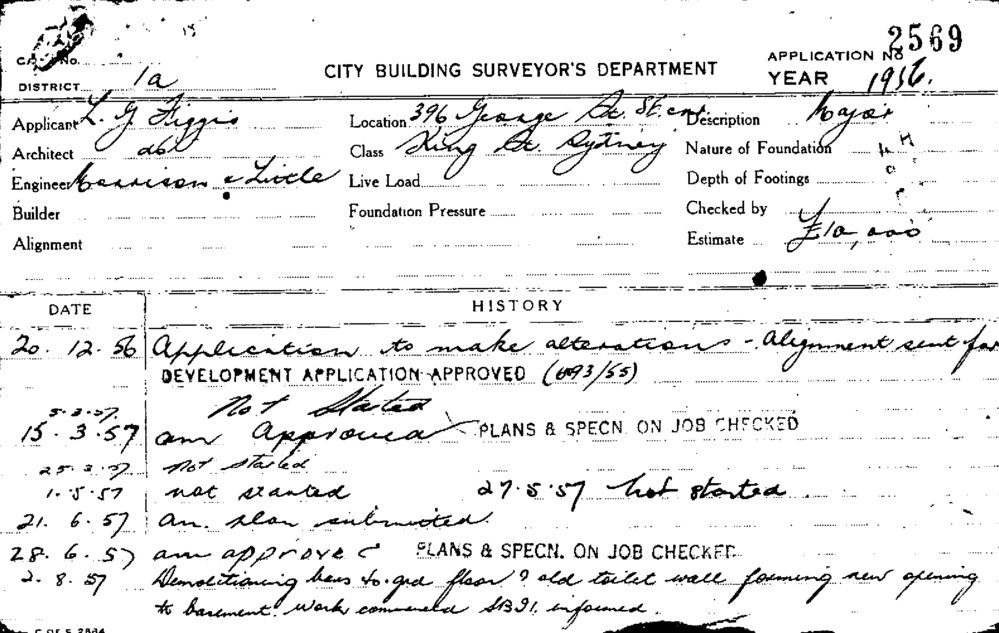 2569
CARD No.
APPLICATION No
DISTRICT 1a
CITY BUILDING SURVEYOR'S DEPARTMENT
YEAR 1956.
Applicant L. G Figgis
Location 396 George St. St cnr.
Description Major
Architect do
Class King St. Sydney
Nature of Foundation
Engineer Morrison & Little
Live Load
Depth of Footings
Builder
Foundation Pressure
Checked by
Alignment
Estimate £10,000
DATE HISTORY
20. 12. 56 Application to make alterations - Alignment sent for
DEVELOPMENT APPLICATION APPROVED (693/55)
5.3.57. Not Started
15. 3. 57 am Approved PLANS & SPECN. ON JOB CHECKED
25. 3. 57 Not started
1. 5. 57 not started 27.5.57 Not started
21. 6. 57 am. plan submitted.
28. 6. 57 am approved PLANS & SPECN. ON JOB CHECKED
2. 8. 57 Demolitioning bars to grd floor & old toilet wall forming new opening
to basement. Work commenced informed.